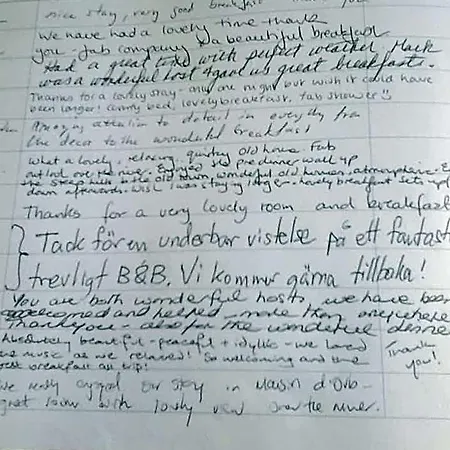 nice stay, very good breakfast
We have had a lovely time thank
you - fab company & a beautiful breakfast
Had a great time with perfect weather, Mark
was a wonderful host & gave us great breakfasts.
Thanks for a lovely stay - only one night but wish it could have
been longer! Comfy bed, lovely breakfast, fab shower
Amazing attention to detail in everything from
the decor to the wonderful breakfast
What a lovely, relaxing, quirky old home. Fab
out look over the river. Enjoyed pre dinner walk up
the steep hills to the old town, wonderful old houses, atmospheric.
down afterwards. Wish I was staying longer - lovely breakfast
Thanks for a very lovely room and breakfast
Tack för en underbar vistelse på ett fantast
trevligt B&B. Vi kommer gärna tillbaka!
You are both wonderful hosts, we have been
welcomed and helped - more than anywhere
Thankyou - also for the wonderful dinne
Absolutely beautiful - peaceful + idyllic - we loved
the music as we relaxed! So welcoming and the
best breakfast all trip!
Thank
you!
We really enjoyed our stay in Maison d'Orb -
great room with lovely view over the river.